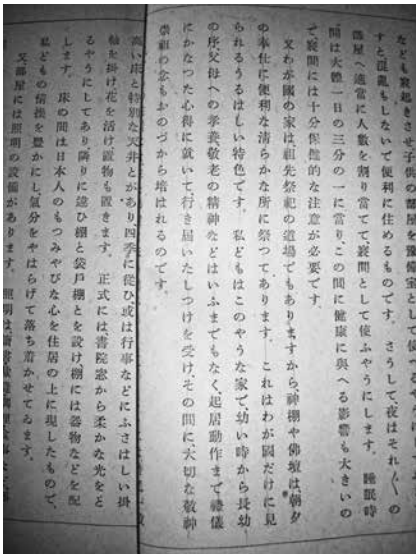 なども寢起きさせ子供の部屋を
すと混亂もしないで便利に住めるものです。さうして、夜はそれ〴〵の
部屋へ適當に人數を割り當てて寢間として使ふやうにします。睡眠時
間は大體一日の三分の一に當り、この間に健康に與へる影響も大きいの
で、寢間には十分保健的な注意が必要です。
又わが國の家は、祖先祭祀の道場でもありますから、神棚や佛壇は朝夕
の奉仕に便利な淸らかな所に祭つてあります。これはわが國だけに見
られるうるはしい特色です。私どもはこのやうな家で幼い時から長幼
の序、父母への孝養、敬老の精神などはいふまでもなく、起居動作まで禮儀
にかなつた心得に就いて、行き屆いたしつけを受け、その間に、大切な敬神
崇祖の念もおのづから培はれるのです。
高い床と特別な天井とがあり、四季に從ひ或は行事などにふさはしい掛
軸を掛け花を活け、置物も置きます。正式には書院窓から柔かな光をと
るやうにしてあり、隣りに違ひ棚と袋戸棚とを設け、棚には器物などを配
します。床の間は日本人のもつみやびな心を住居の上に現したもので、
私どもの情操を豐かにし、氣分をやはらげて落ち着かせてゐます。
又部屋には照明の設備があります。照明は